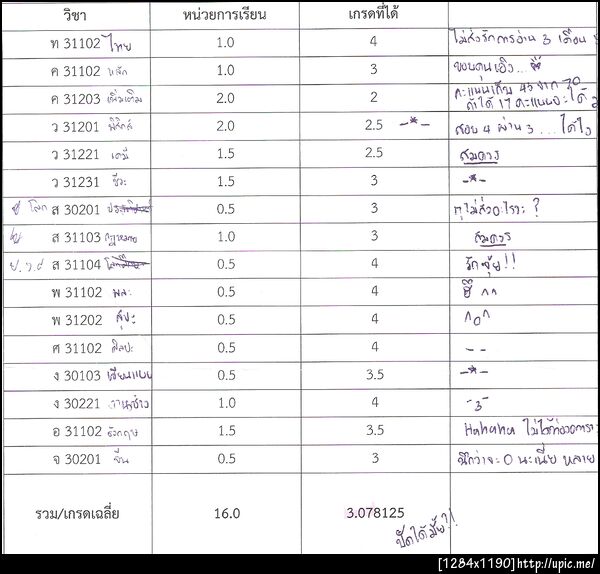 วิชา หน่วยการเรียน เกรดที่ได้
ท 31102 ไทย 1.0 4 ไม่ส่งรักการอ่าน 3 เดือน
ค 31102 หลัก 1.0 3 ขอบคุณเอิง...
ค 31203 เพิ่มเติม 2.0 2 คะแนนเก็บ 43 จาก 70
ถ้าได้ 17 คะแนนจะได้
ว 31201 ฟิสิกส์ 2.0 2.5 -*- สอบ 4 ผ่าน 3 ... ได้ไง
ว 31221 เคมี 1.5 2.5 สมควร
ว 31231 ชีวะ 1.5 3 -*-
โลก ส 30201 0.5 3 กูไม่ส่งอะไรวะ ?
ส 31103 กฎหมาย 1.0 3 สมควร
ป.ว.ศ ส 31104 0.5 4 รักจุ้ย!!
พ 31102 พละ 0.5 4 ^^
พ 31202 สุขะ 0.5 4 ^o^
ศ 31102 ศิลปะ 0.5 4 - -
ง 30103 เขียนแบบ 0.5 3.5 -*-
ง 30221 1.0 4 -3-
อ 31102 อังกฤษ 1.5 3.5 Hahaha ไม่ได้
จ 30201 จีน 0.5 3 นึกว่าจะ 0 นะเนี่ย หลาย
รวม/เกรดเฉลี่ย 16.0 3.078125
ปัดได้มั้ย?!!
[1284x1190]http://upic.me/